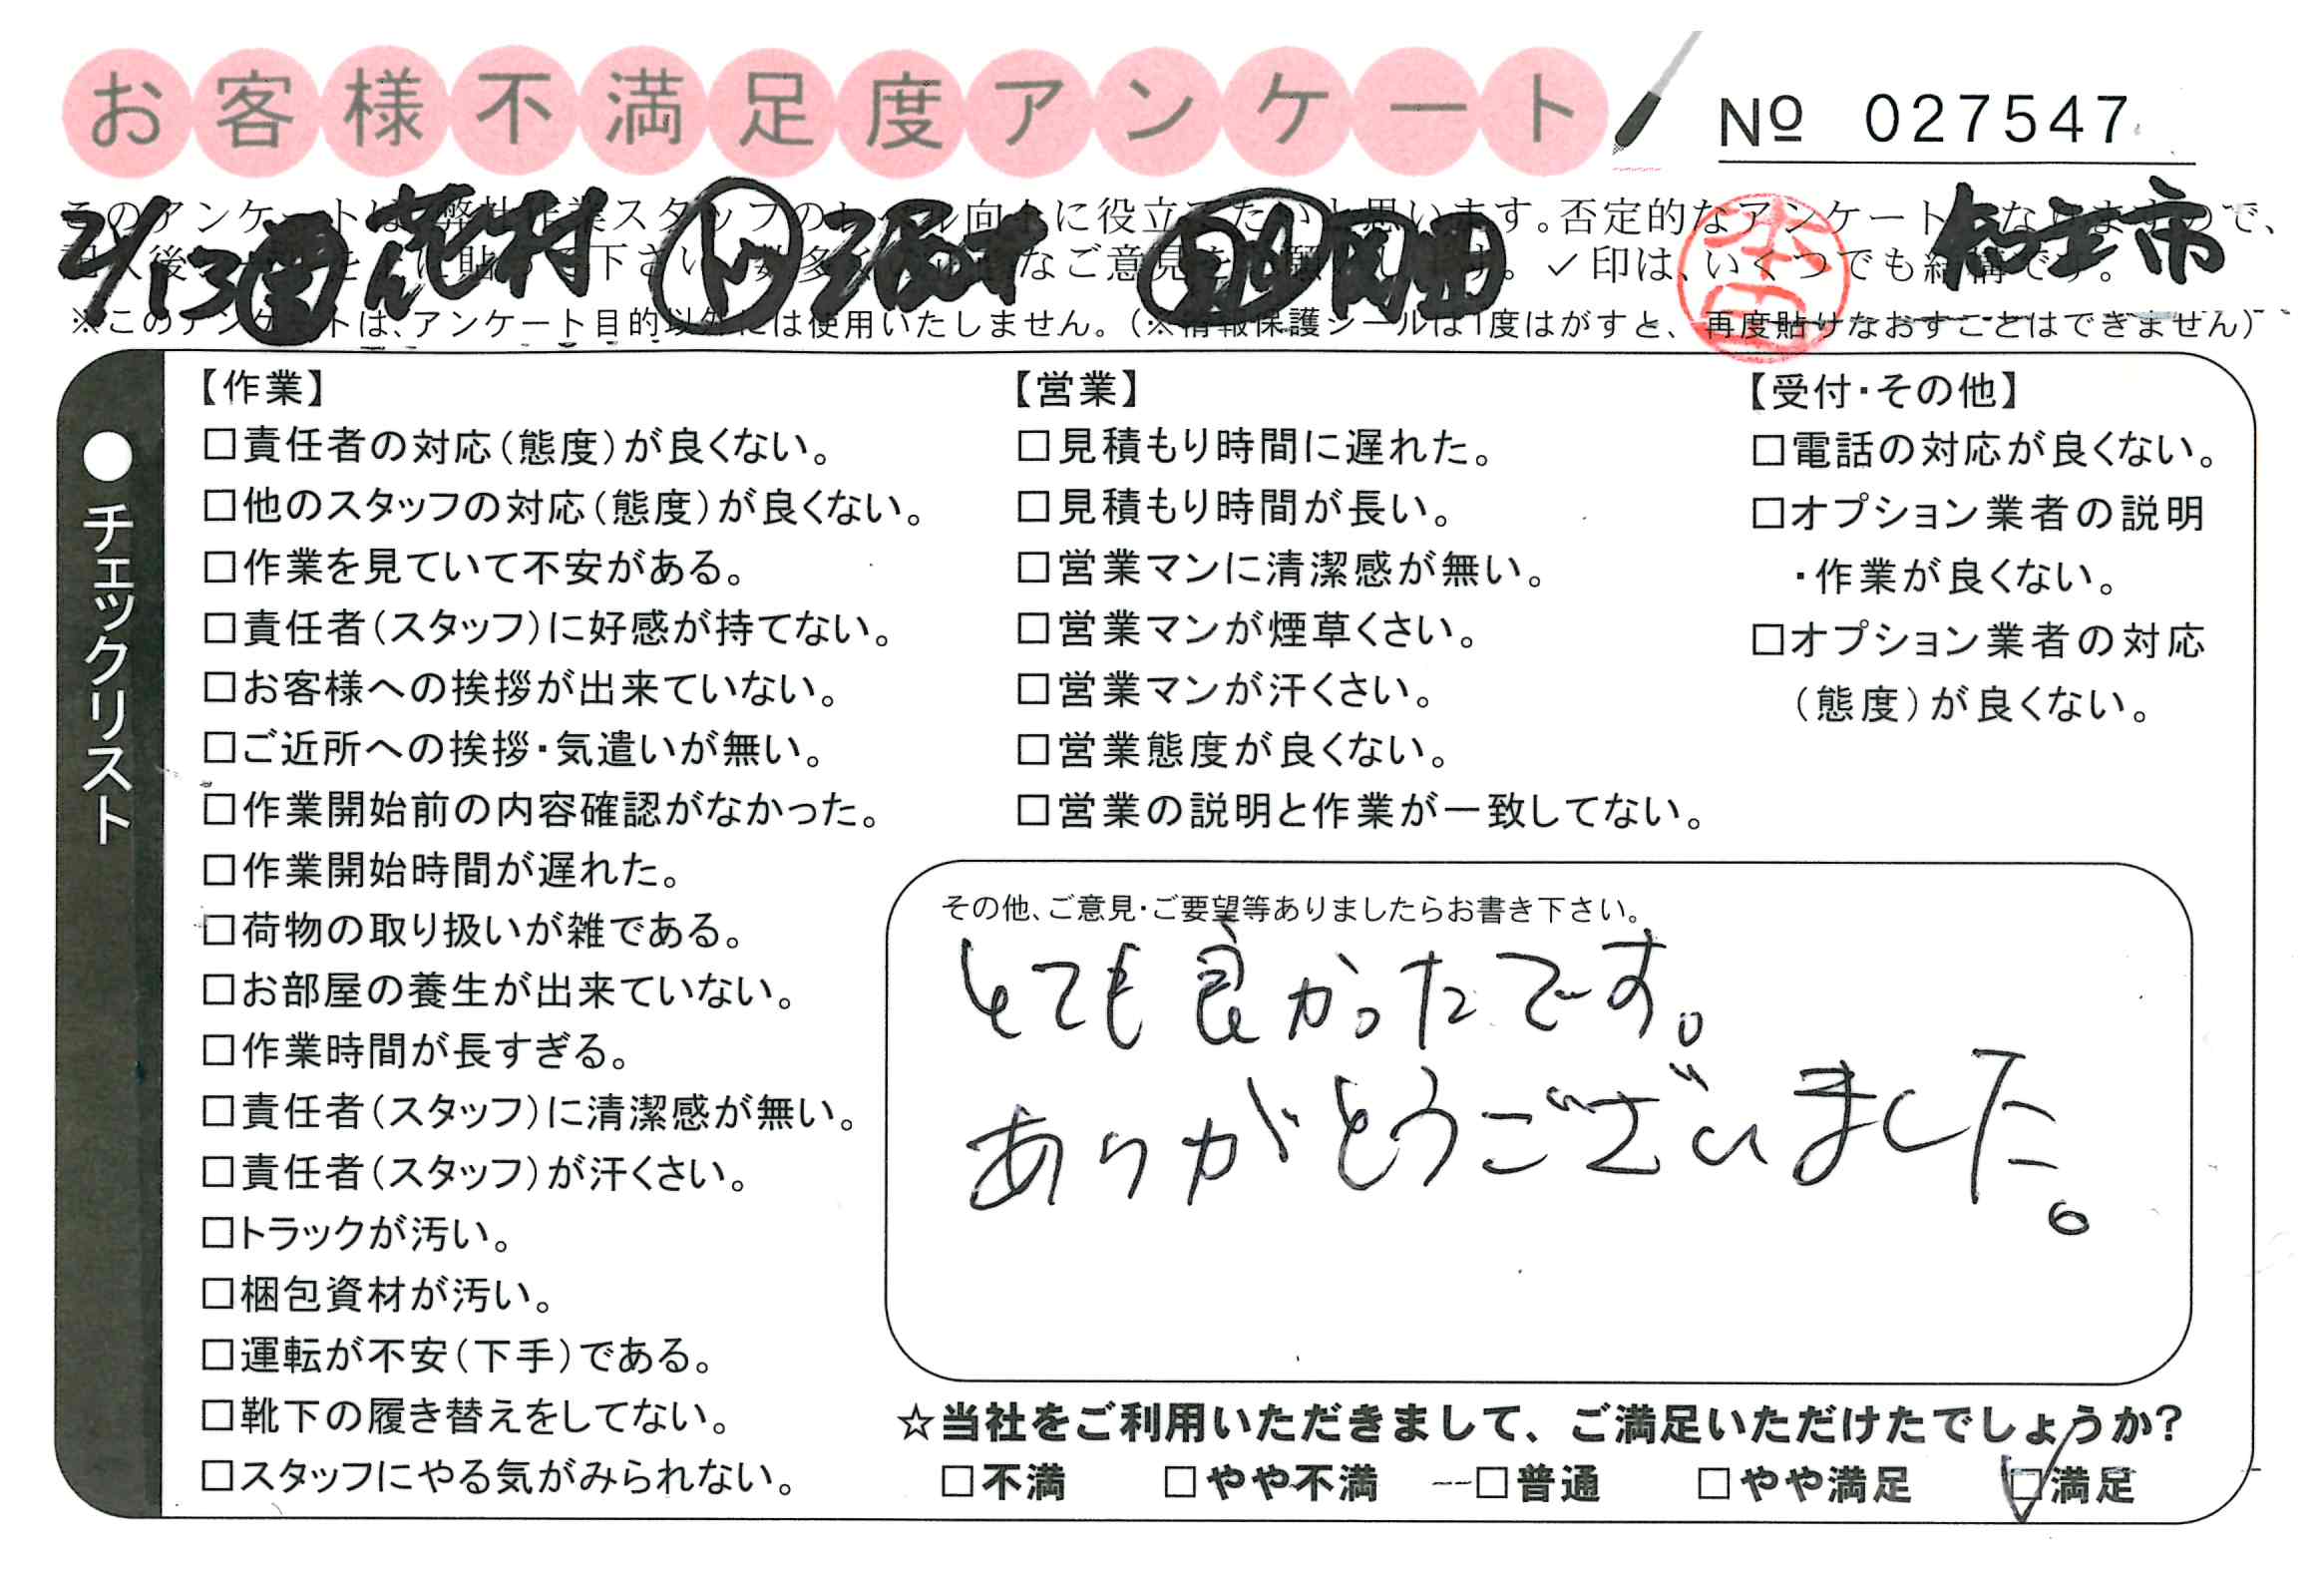 お客様不満足度アンケート
№ 027547
2/13 花村 岡田 市
※このアンケートは、アンケート目的以外には使用いたしません。(※情報保護シールは1度はがすと、再度貼りなおすことはできません)
●チェックリスト
【作業】
□責任者の対応(態度)が良くない。
□他のスタッフの対応(態度)が良くない。
□作業を見ていて不安がある。
□責任者(スタッフ)に好感が持てない。
□お客様への挨拶が出来ていない。
□ご近所への挨拶・気遣いが無い。
□作業開始前の内容確認がなかった。
□作業開始時間が遅れた。
□荷物の取り扱いが雑である。
□お部屋の養生が出来ていない。
□作業時間が長すぎる。
□責任者(スタッフ)に清潔感が無い。
□責任者(スタッフ)が汗くさい。
□トラックが汚い。
□梱包資材が汚い。
□運転が不安(下手)である。
□靴下の履き替えをしてない。
□スタッフにやる気がみられない。
【営業】
□見積もり時間に遅れた。
□見積もり時間が長い。
□営業マンに清潔感が無い。
□営業マンが煙草くさい。
□営業マンが汗くさい。
□営業態度が良くない。
□営業の説明と作業が一致してない。
【受付・その他】
□電話の対応が良くない。
□オプション業者の説明
・作業が良くない。
□オプション業者の対応
(態度)が良くない。
その他、ご意見・ご要望等ありましたらお書き下さい。
とても良かったです。
ありがとうございました。
☆当社をご利用いただきまして、ご満足いただけたでしょうか?
□不満 □やや不満 □普通 □やや満足 ☑満足